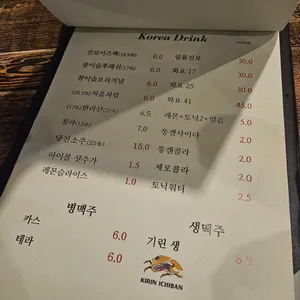 Korea Drink
진로이즈백(16.9%) 6.0 일품진로 30.0
참이슬후레쉬(17%) 6.0 화요 17 30.0
참이슬오리지널 6.0 화요 25 30.0
(20.1%)처음처럼 6.0 화요 41 45.0
(17%)한라산(21%) 6.5 레몬+토닉2+얼음 5.0
7.0 통캔사이다 2.0
당진소주(25%) 15.0 통캔콜라 2.0
하이볼 샷추가 1.5 제로콜라 2.0
레몬슬라이스 1.0 토닉워터 2.5
병맥주 생맥주
카스 6.0 기린 생
테라 6.0
KIRIN ICHIBAN